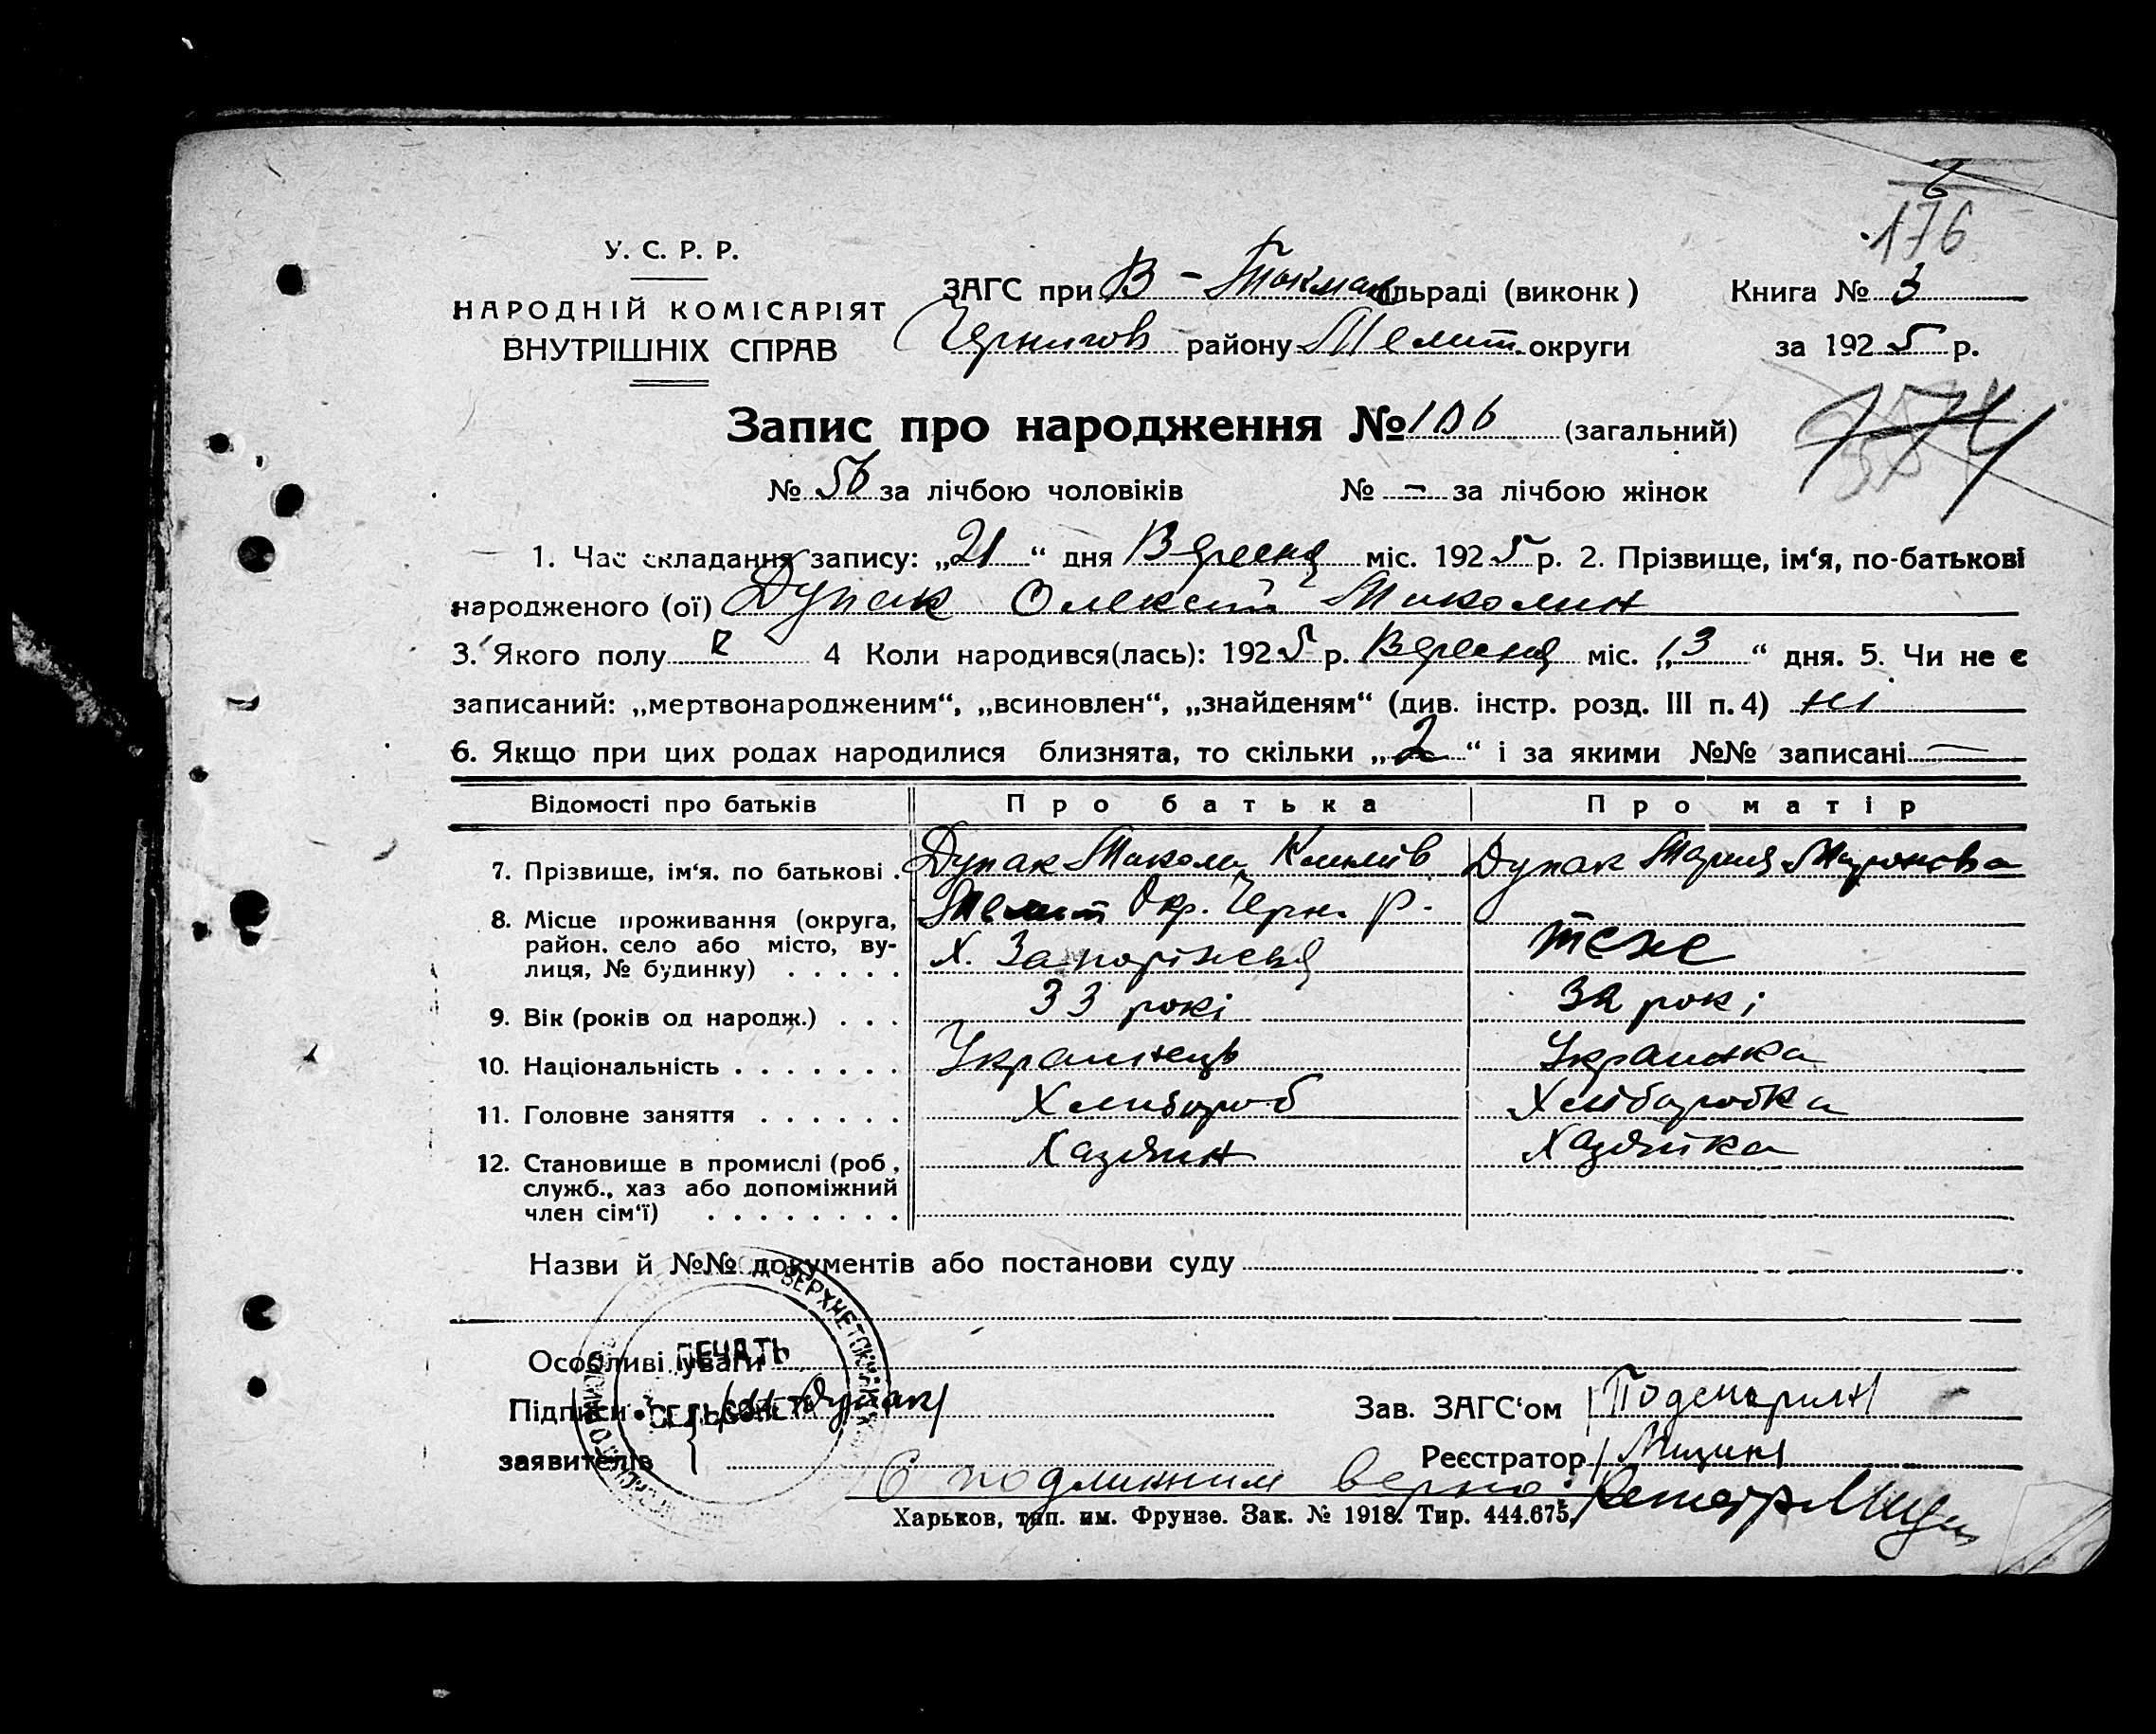 6
176
У. С. Р. Р.
НАРОДНІЙ КОМІСАРІЯТ
ВНУТРІШНІХ СПРАВ
ЗАГС при В-Токмак ільраді (виконк)
Чернигов району Мелит. округи
Книга № 3
за 1925 р.
Запис про народження № 106 (загальний)
174
№ 56 за лічбою чоловіків № - за лічбою жінок
1. Час складання запису: „21“ дня Вересня міс. 1925 р. 2. Прізвище, ім‘я, по-батькові
народженого (ої) Дупак Олексій Миколин
3. Якого полу ч 4 Коли народився(лась): 1925 р. Вересня міс. „13“ дня. 5. Чи не є
записаний: „мертвонародженим“, „всиновлен“, „знайденям“ (див. інстр. розд. III п. 4) ні
6. Якщо при цих родах народилися близнята, то скільки „2“ і за якими №№ записані —
Відомості про батьків Про батька Про матір
7. Прізвище, ім‘я, по батькові . Дупак Микола Дупак Мария
8. Місце проживання (округа, Мелит Окр. Черн. р.
район, село або місто, ву- Х. Запоріжья теже
лиця, № будинку) . . . . .
9. Вік (років од народж.) . . . 33 рокі 32 рокі
10. Національність . . . . . . . Украинець Украинка
11. Головне заняття . . . . . . Хлибороб Хліборобка
12. Становище в промислі (роб., Хазяин Хазяйка
служб., хаз або допоміжний
член сім‘ї) . . . . . . . .
Назви й №№ документів або постанови суду
Особливі уваги
ПЕЧАТЬ
СЕЛЬСОВЕТА
ВЕРХНЕТОКМАКСКОГО
Підписи Дупак/ Зав. ЗАГС‘ом
заявителів Реєстратор /Мицик/
С подлинним верно:
Харьков, тип. им. Фрунзе. Зак. № 1918. Тир. 444.675.